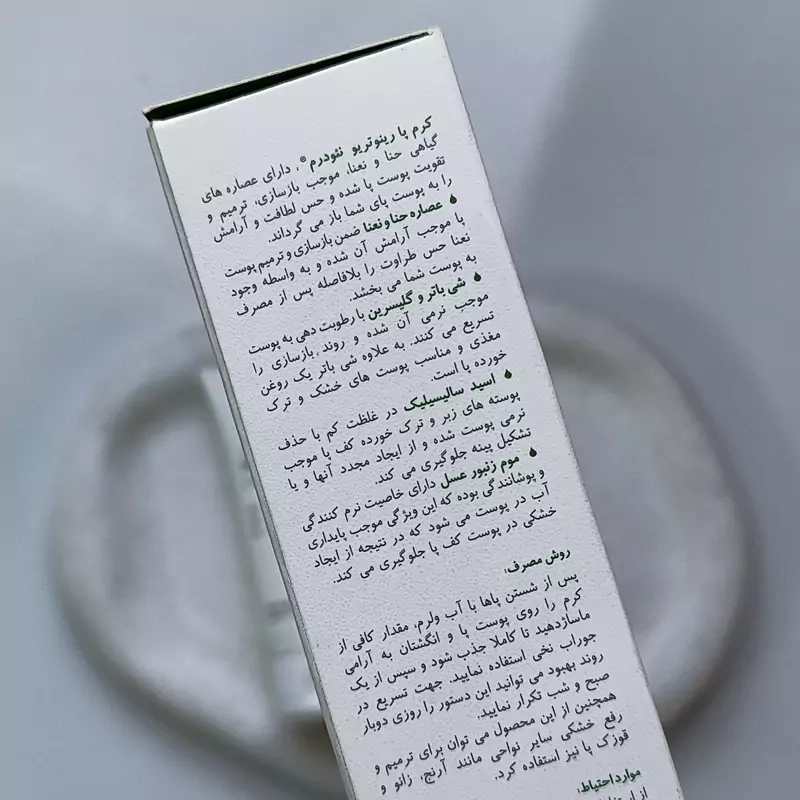 کرم پا رینوتریو نئودرم®، دارای عصاره های
گیاهی حنا و نعنا، موجب بازسازی، ترمیم و
تقویت پوست پا شده و حس لطافت و آرامش
را به پوست پای شما باز می گرداند.
عصاره حنا و نعنا ضمن بازسازی و ترمیم پوست
پا موجب آرامش آن شده و به واسطه وجود
نعنا حس طراوت را بلافاصله پس از مصرف
به پوست شما می بخشد.
شی باتر و گلیسرین با رطوبت دهی به پوست
موجب نرمی آن شده و روند بازسازی را
تسریع می کنند. به علاوه شی باتر یک روغن
مغذی و مناسب پوست های خشک و ترک
خورده پا است.
اسید سالیسیلیک در غلظت کم با حذف
پوسته های زبر و ترک خورده کف پا موجب
نرمی پوست شده و از ایجاد مجدد آنها و یا
تشکیل پینه جلوگیری می کند.
موم زنبور عسل دارای خاصیت نرم کنندگی
و پوشانندگی بوده که این ویژگی موجب پایداری
آب در پوست می شود که در نتیجه از ایجاد
خشکی در پوست کف پا جلوگیری می کند.
روش مصرف:
پس از شستن پاها با آب ولرم، مقدار کافی از
کرم را روی پوست پا و انگشتان به آرامی
ماساژدهید تا کاملا جذب شود و سپس از یک
جوراب نخی استفاده نمایید. جهت تسریع در
روند بهبود می توانید این دستور را روزی دوبار
صبح و شب تکرار نمایید.
همچنین از این محصول می توان برای ترمیم و
رفع خشکی سایر نواحی مانند آرنج، زانو و
قوزک پا نیز استفاده کرد.
موارد احتیاط: